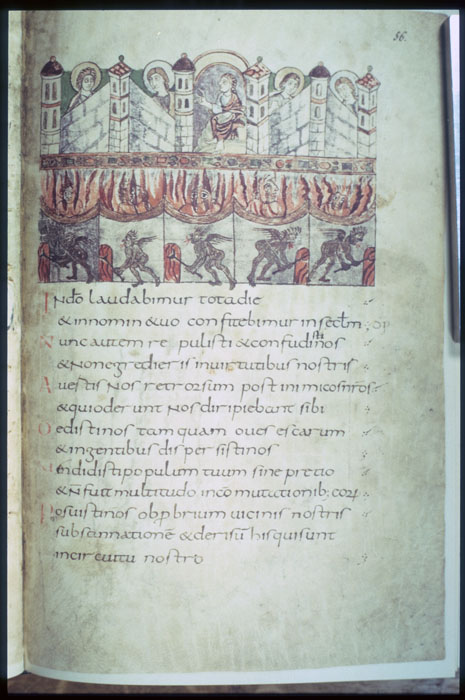 56.
INdō laudabimur tota die
& in nomin & uo confitebimur in seclm
Nunc autem re pulisti & confudisti nos
& Non egredieris in uirtutibus nostris
Auestis Nos retrorsum post inimicos nros
& qui oderunt Nos diripiebant sibi
Dedistinos tamquam oues escarum
& in gentibus dispersisti nos
Vendidisti populum tuum sine precio
& N̄ fuit multitudo in cōmutationib; eorum
Posuistinos obprobrium uicinis nostris
subsannationē & derisū his qui sunt
in circuitu nostro